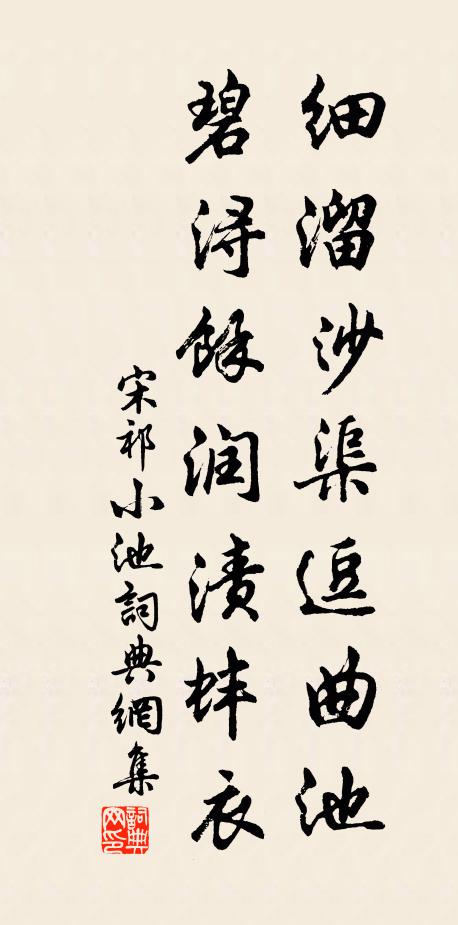 细溜沙渠逗曲池
碧浔餘润漬蚌衣
宋祁小池詞典網集
詞典网印